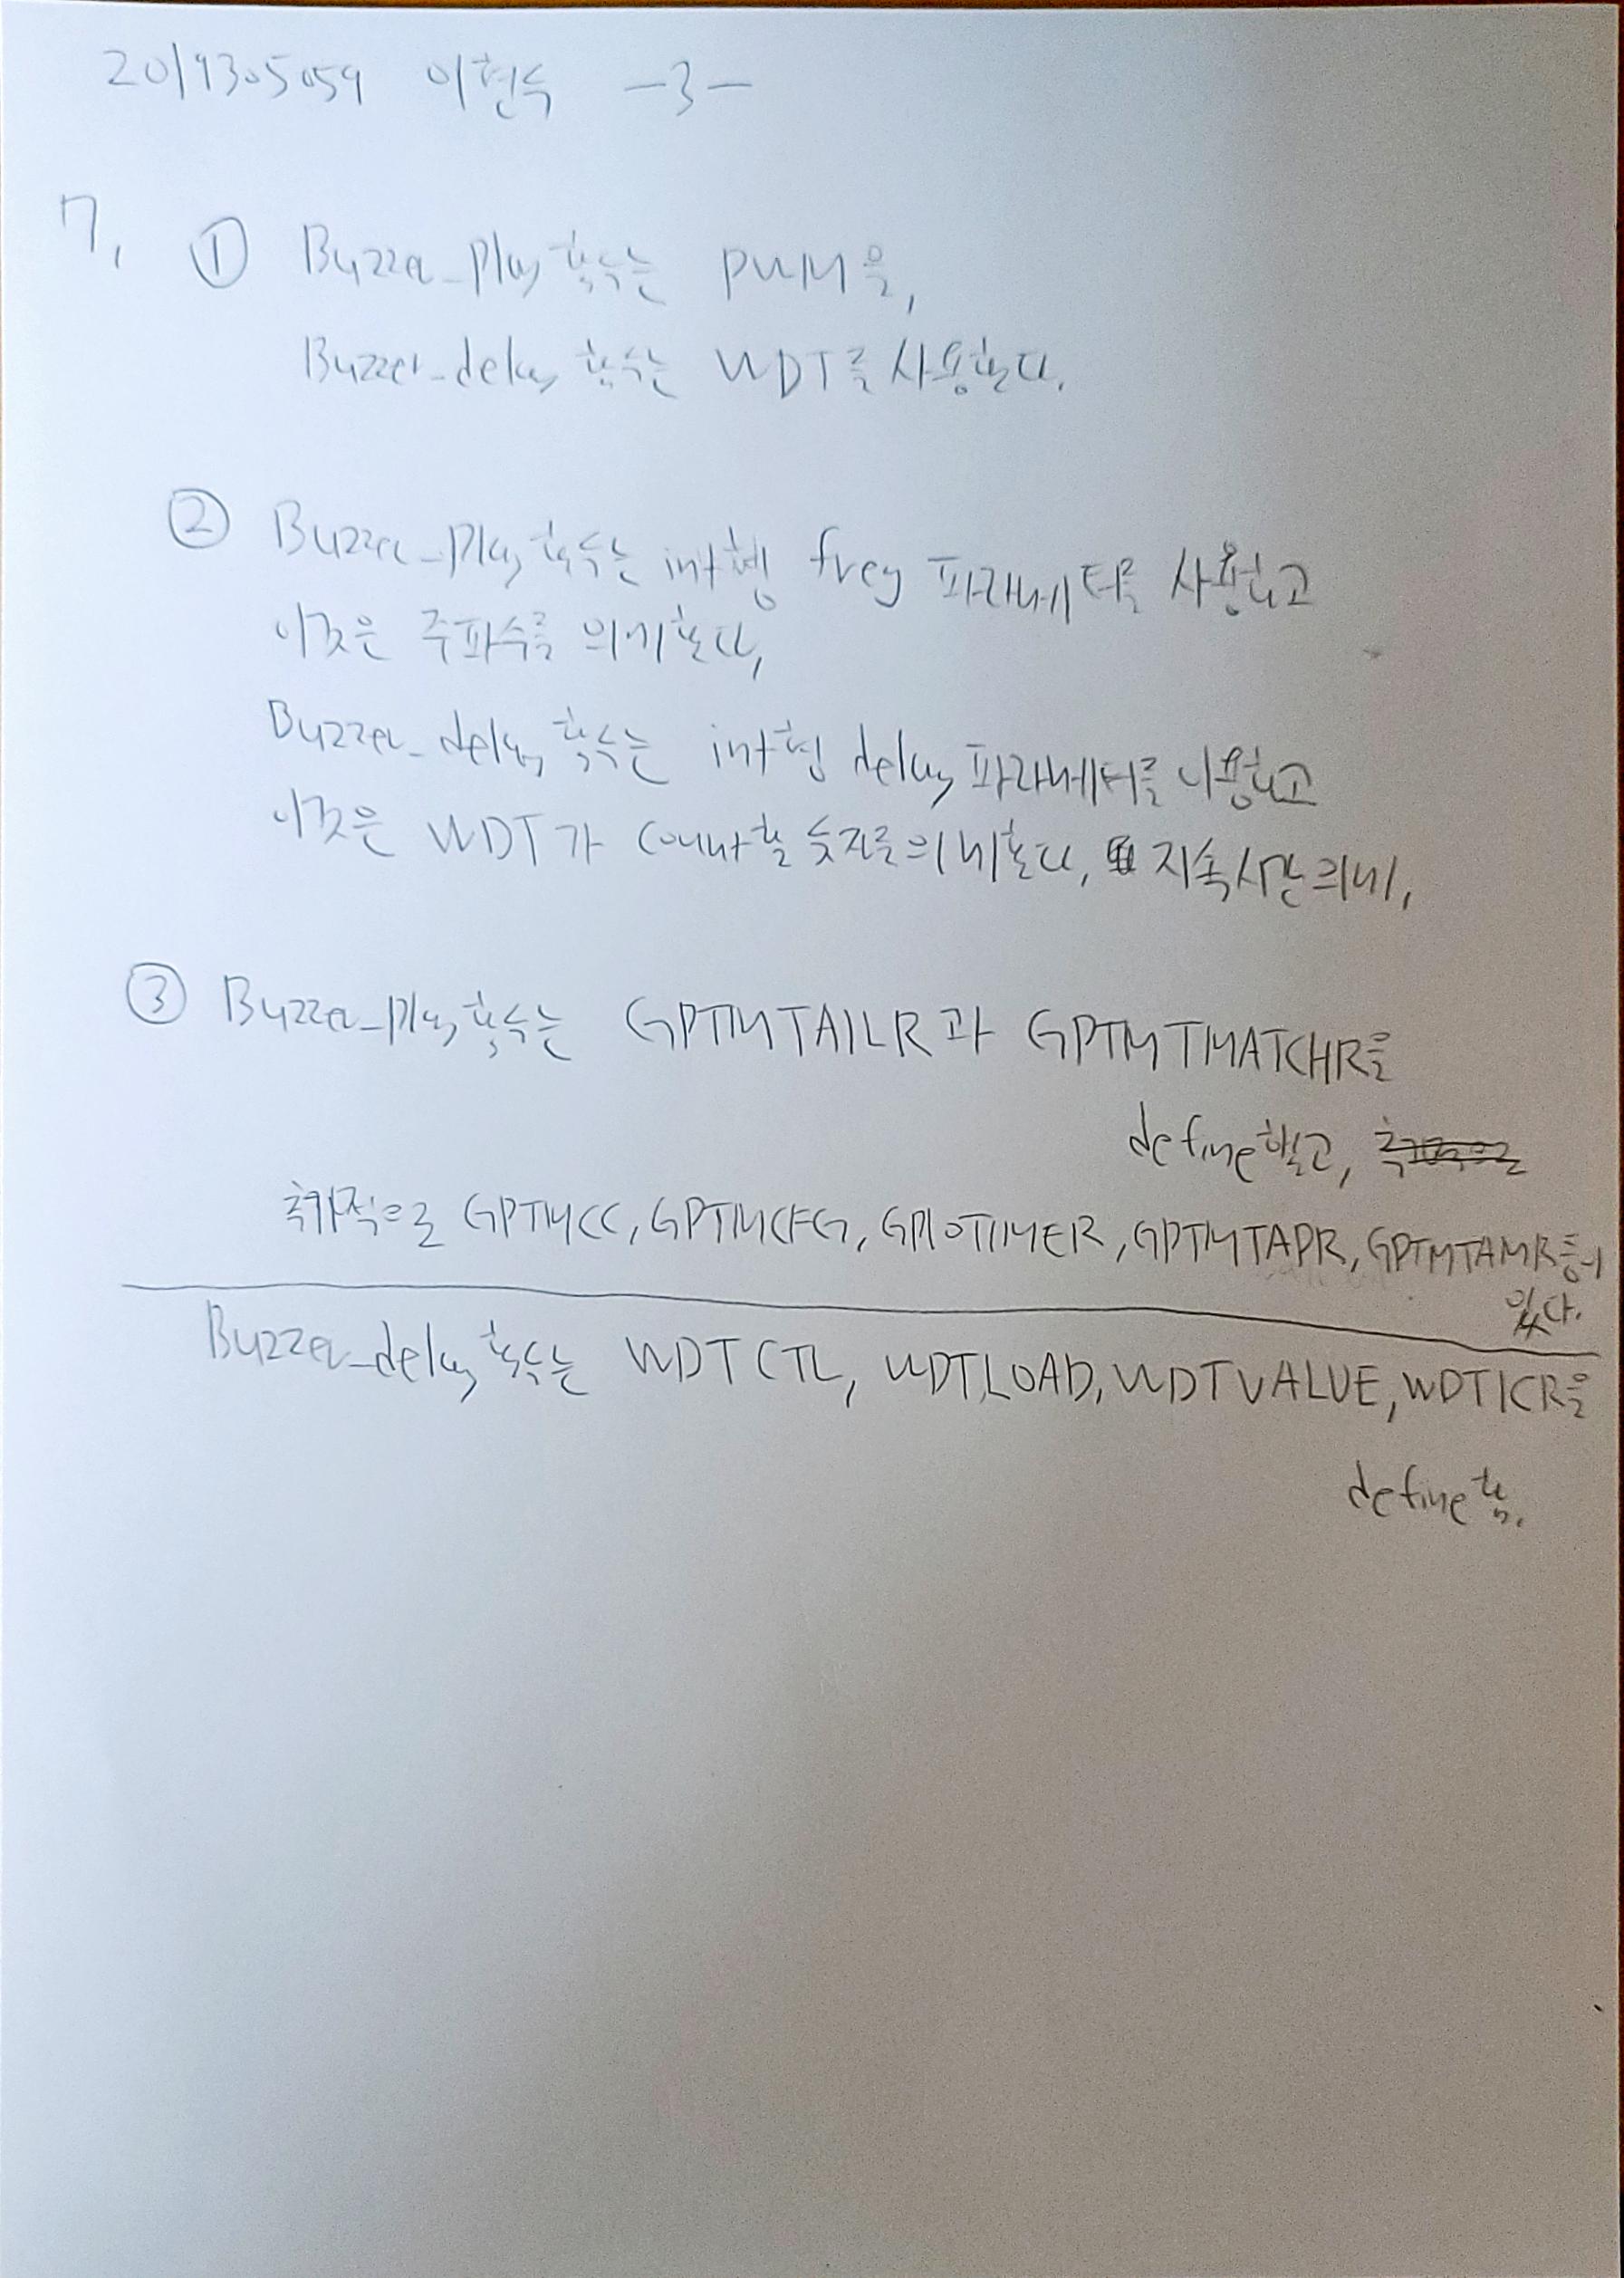 2019305059 이현수 -3-
7. ① Buzzer_Play 함수는 PWM을,
Buzzer_delay 함수는 WDT를 사용한다.
② Buzzer_Play 함수는 int형 freq 파라메터를 사용하고
이것은 주파수를 의미한다.
Buzzer_delay 함수는 int형 delay 파라메터를 이용하고
이것은 WDT가 count할 숫자를 의미한다, 지속시간 의미.
③ Buzzer_Play 함수는 GPTMTAILR과 GPTMTMATCHR을
define하고,
추가적으로 GPTMCC, GPTMCFG, GPIOTIMER, GPTMTAPR, GPTMTAMR 등이
있다.
Buzzer_delay 함수는 WDTCTL, WDTLOAD, WDTVALUE, WDTICR을
define함.